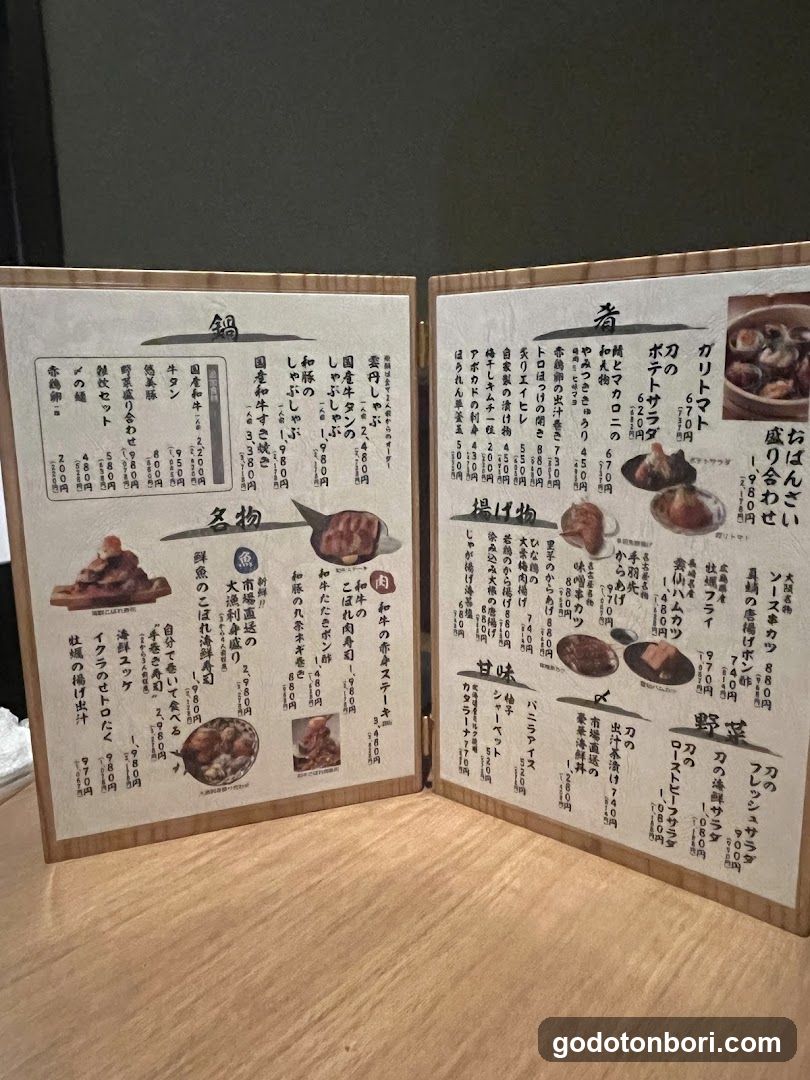 鍋
雲丹しゃぶ
一人前 2,480円
国産牛タンの
しゃぶしゃぶ
一人前 1,980円
和豚の
しゃぶしゃぶ
一人前 1,980円
国産和牛すき焼き
一人前 3,380円
国産和牛 一人前 2,200円
牛タン 950円
悠美豚 800円
野菜盛り合わせ 980円
雑炊セット 580円
〆の麺 480円
赤鶏卵 200円
名物
和牛ステーキ
肉
和牛の赤身ステーキ
3,480円
和牛の
こぼれ肉寿司
1,980円
和牛たたきポン酢
1,480円
和豚の九条ネギ巻き
880円
魚
新鮮!!
市場直送の
大漁刺身盛り
2,980円
鮮魚のこぼれ海鮮寿司
1,980円
自分で巻いて食べる
"手巻き寿司"
2,980円
海鮮ユッケ
1,980円
イクラのせトロたく
980円
牡蠣の揚げ出汁
970円
肴
おばんざい
盛り合わせ
1,980円
(2,178円)
ガリトマト
670円
(737円)
刀の
ポテトサラダ
620円
鯖とマカロニの
和え物
670円
やみつききゅうり
450円
赤鶏卵の出汁巻き 730円
トロほっけの開き 880円
炙りエイヒレ 550円
自家製の漬け物 450円
梅干しキムチ一粒 200円
アボカドの刺身 430円
ほうれん草釜玉 500円
ポテトサラダ
ガリトマト
揚げ物
大阪名物
ソース串カツ 880円
真鯛の唐揚げポン酢
740円
広島県産
牡蠣フライ
970円
長崎名産
雲仙ハムカツ
1,480円
名古屋名物
手羽先
からあげ
970円
名古屋名物
味噌串カツ
880円
里芋のからあげ 880円
ひな鶏の
大葉梅肉揚げ
740円
若鶏のから揚げ 880円
染み込み大根の唐揚げ
880円
じゃが揚げ海苔塩
680円
甘味
バニラアイス
520円
柚子
シャーベット
520円
カタラーナ 770円
〆
刀の
出汁茶漬け 740円
市場直送の
豪華海鮮丼
1,280円
野菜
刀の
フレッシュサラダ
900円
刀の海鮮サラダ
1,080円
刀の
ローストビーフサラダ
1,080円
godotonbori.com